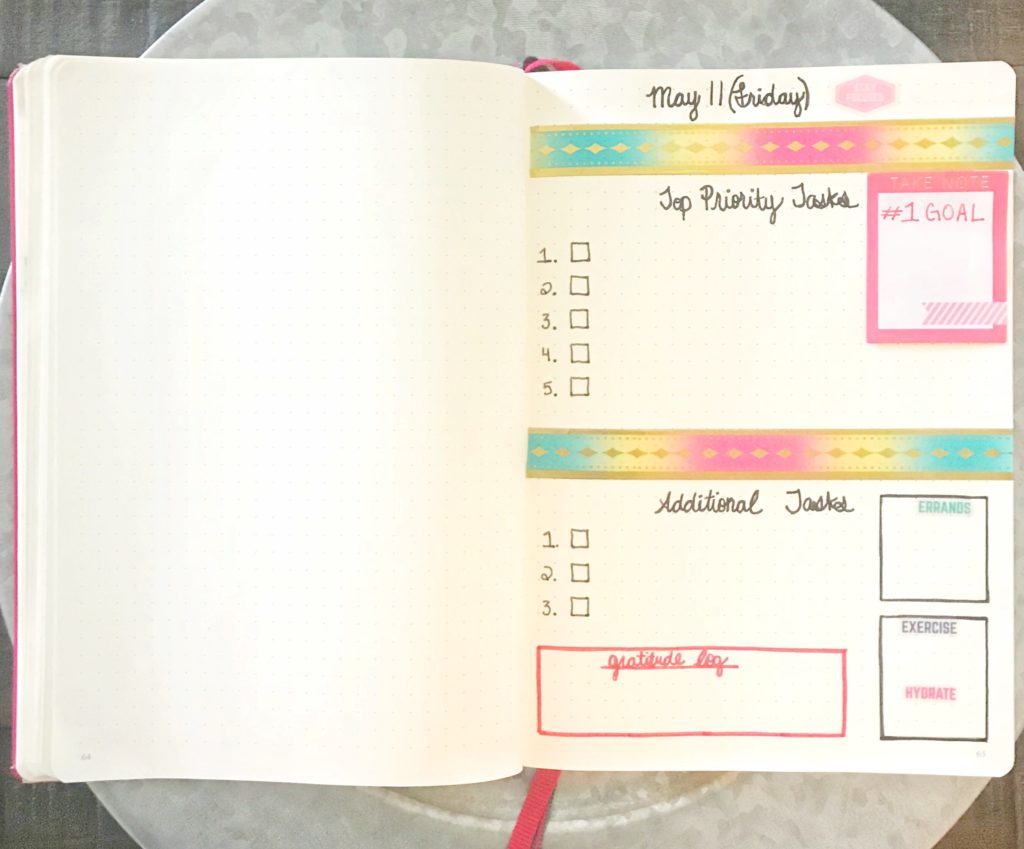 May 11 (Friday)
STAY
FOCUSED
Top Priority Tasks
TAKE NOTE
#1 GOAL
1.
2.
3.
4.
5.
Additional Tasks
1.
2.
3.
ERRANDS
EXERCISE
HYDRATE
gratitude log
64
65